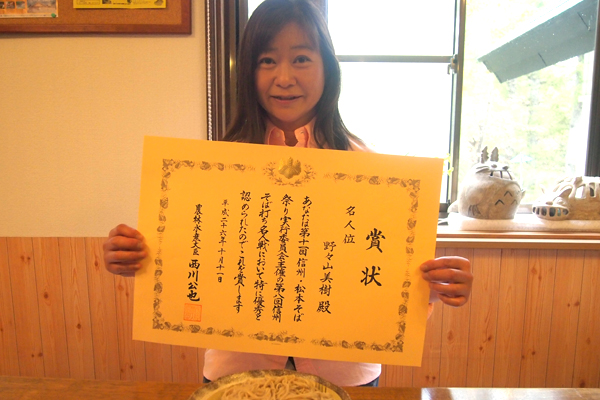 賞状
名人位
野々山美樹殿
あなたは第十一回信州・松本そば
祭り実行委員会主催の第八回信州
そば打ち名人戦において特に優秀と
認められたのでこれを賞します
平成二十六年十月十一日
農林水産大臣 西川公也